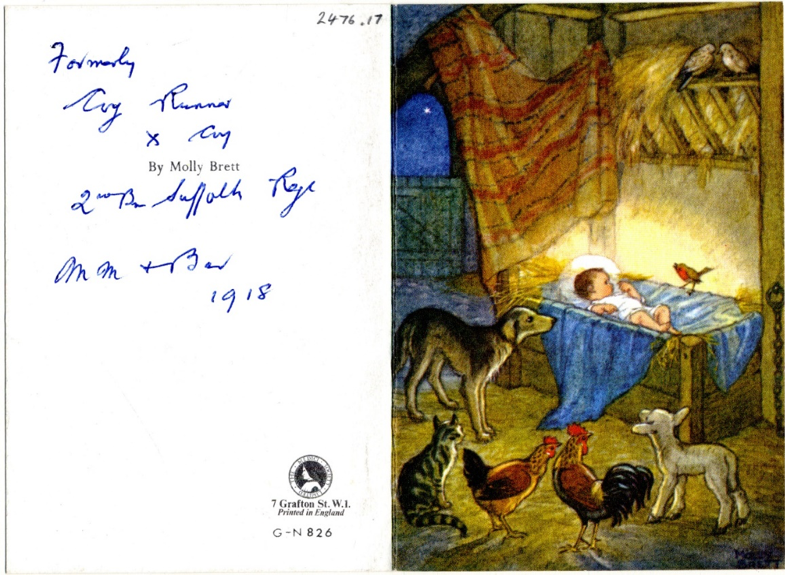 2476.17
Formerly
Coy Runner
X Coy
By Molly Brett
2nd Bn Suffolk Regt
M M + Bar
1918
THE MEDICI SOCIETY
7 Grafton St. W.1.
Printed in England
G-N 826
MOLLY
BRETT